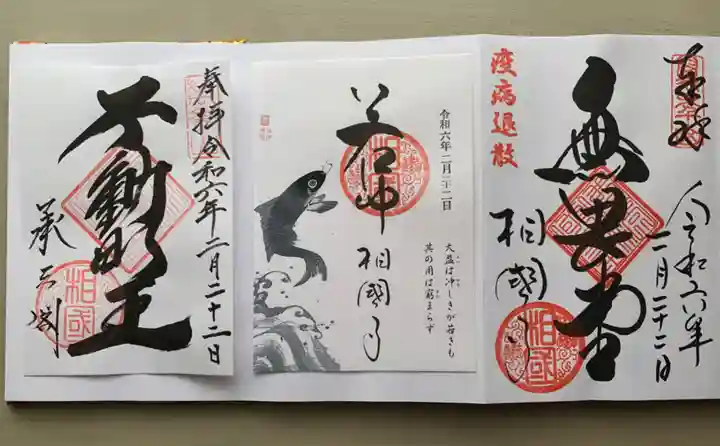 奉拝
令和六年
二月二十二日
無畏堂
相國寺
相国
疫病退散
令和六年二月二十二日
若冲
相国
相國寺
大盈は冲しきが若きも
其の用は窮まらず
奉拝令和六年二月二十二日
不動明王
承天閣
相国